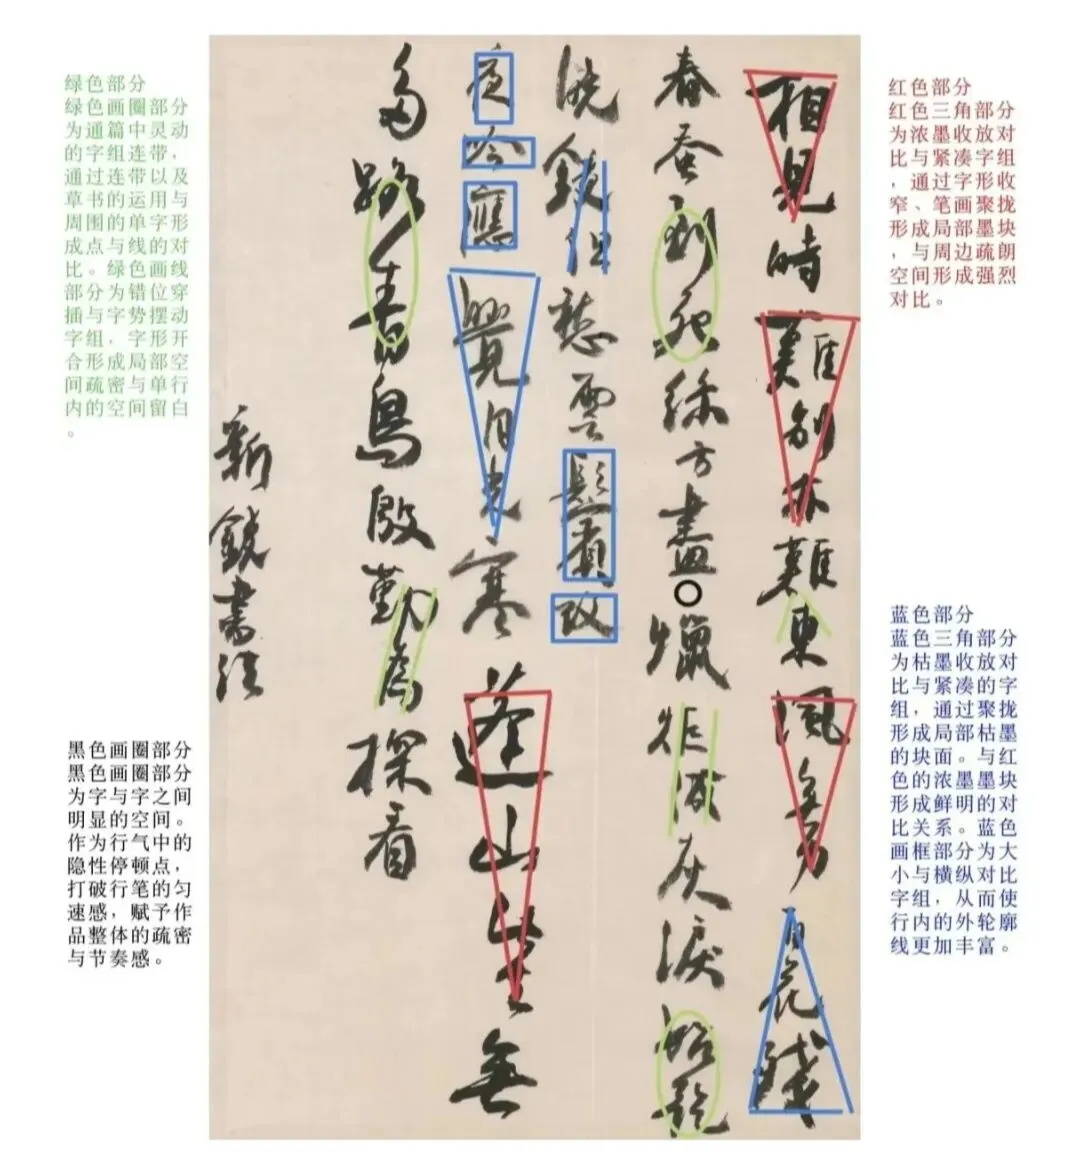 绿色部分
绿色画圈部分
为通篇中灵动
的字组连带，
通过连带以及
草书的运用与
周围的单字形
成点与线的对
比。绿色画线
部分为错位穿
插与字势摆动
字组，字形开
合形成局部空
间疏密与单行
内的空间留白
。
黑色画圈部分
黑色画圈部分
为字与字之间
明显的空间。
作为行气中的
隐性停顿点，
打破行笔的匀
速感，赋予作
品整体的疏密
与节奏感。
相見時難別亦難東風無力百花殘
春蚕到死絲方盡蠟炬成灰淚始乾
曉鏡但愁雲鬢改
夜吟應覺月光寒蓬山此去無
多路青鳥殷勤為探看
新銳書法
红色部分
红色三角部分
为浓墨收放对
比与紧凑字组
，通过字形收
窄、笔画聚拢
形成局部墨块
，与周边疏朗
空间形成强烈
对比。
蓝色部分
蓝色三角部分
为枯墨收放对
比与紧凑的字
组，通过聚拢
形成局部枯墨
的块面。与红
色的浓墨墨块
形成鲜明的对
比关系。蓝色
画框部分为大
小与横纵对比
字组，从而使
行内的外轮廓
线更加丰富。